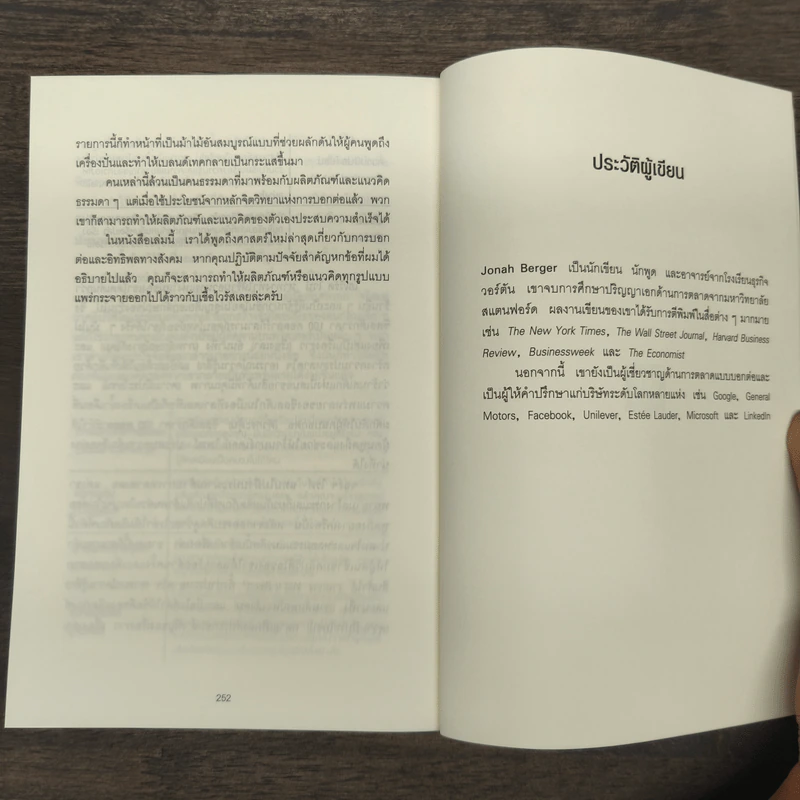 รายการนี้ก็ทำหน้าที่เป็นม้าไม้อันสมบูรณ์แบบที่ช่วยผลักดันให้ผู้คนพูดถึง
เครื่องปั่นและทำให้เบลนด์เทคกลายเป็นกระแสขึ้นมา
คนเหล่านี้ล้วนเป็นคนธรรมดาที่มาพร้อมกับผลิตภัณฑ์และแนวคิด
ธรรมดา ๆ แต่เมื่อใช้ประโยชน์จากหลักจิตวิทยาแห่งการบอกต่อแล้ว พวก
เขาก็สามารถทำให้ผลิตภัณฑ์และแนวคิดของตัวเองประสบความสำเร็จได้
ในหนังสือเล่มนี้ เราได้พูดถึงศาสตร์ใหม่ล่าสุดเกี่ยวกับการบอก
ต่อและอิทธิพลทางสังคม หากคุณปฏิบัติตามปัจจัยสำคัญหกข้อที่ผมได้
อธิบายไปแล้ว คุณก็จะสามารถทำให้ผลิตภัณฑ์หรือแนวคิดทุกรูปแบบ
แพร่กระจายออกไปได้ราวกับเชื้อไวรัสเลยล่ะครับ
252
ประวัติผู้เขียน
Jonah Berger เป็นนักเขียน นักพูด และอาจารย์จากโรงเรียนธุรกิจ
วอร์ตัน เขาจบการศึกษาปริญญาเอกด้านการตลาดจากมหาวิทยาลัย
สแตนฟอร์ด ผลงานเขียนของเขาได้รับการตีพิมพ์ในสื่อต่าง ๆ มากมาย
เช่น The New York Times, The Wall Street Journal, Harvard Business
Review, Businessweek และ The Economist
นอกจากนี้ เขายังเป็นผู้เชี่ยวชาญด้านการตลาดแบบบอกต่อและ
เป็นผู้ให้คำปรึกษาแก่บริษัทระดับโลกหลายแห่ง เช่น Google, General
Motors, Facebook, Unilever, Estée Lauder, Microsoft และ LinkedIn